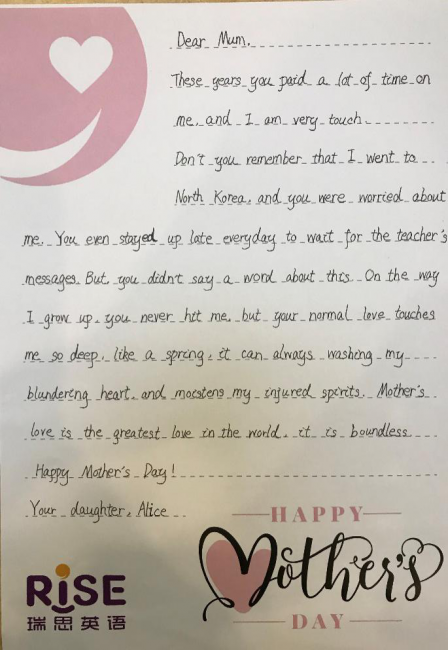 Dear Mum,
These years you paid a lot of time on
me, and I am very touch.
Don't you remember that I went to
North Korea, and you were worried about
me. You even stayed up late everyday to wait for the teacher's
messages. But you didn't say a word about this. On the way
I grow up, you never hit me, but your normal love touches
me so deep, like a spring, it can always washing my
blundering heart, and moistens my injured spirits. Mother's
love is the greatest love in the world, it is boundless
Happy Mother's Day!
Your daughter, Alice
HAPPY
Mother's
DAY
RiSE
瑞思英语